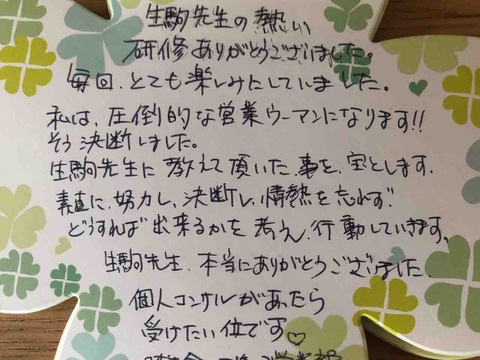 生駒先生の熱い
研修ありがとうございました。
毎回、とても楽しみにしていました。
私は、圧倒的な営業ウーマンになります!!
そう決断しました。
生駒先生に教えて頂いた、事を、宝とします。
素直に、努力し、決断し、情熱を忘れず
どうすれば出来るかを考え、行動していきます。
生駒先生、本当にありがとうございました。
個人コンサルがあったら
受けたい位です♡